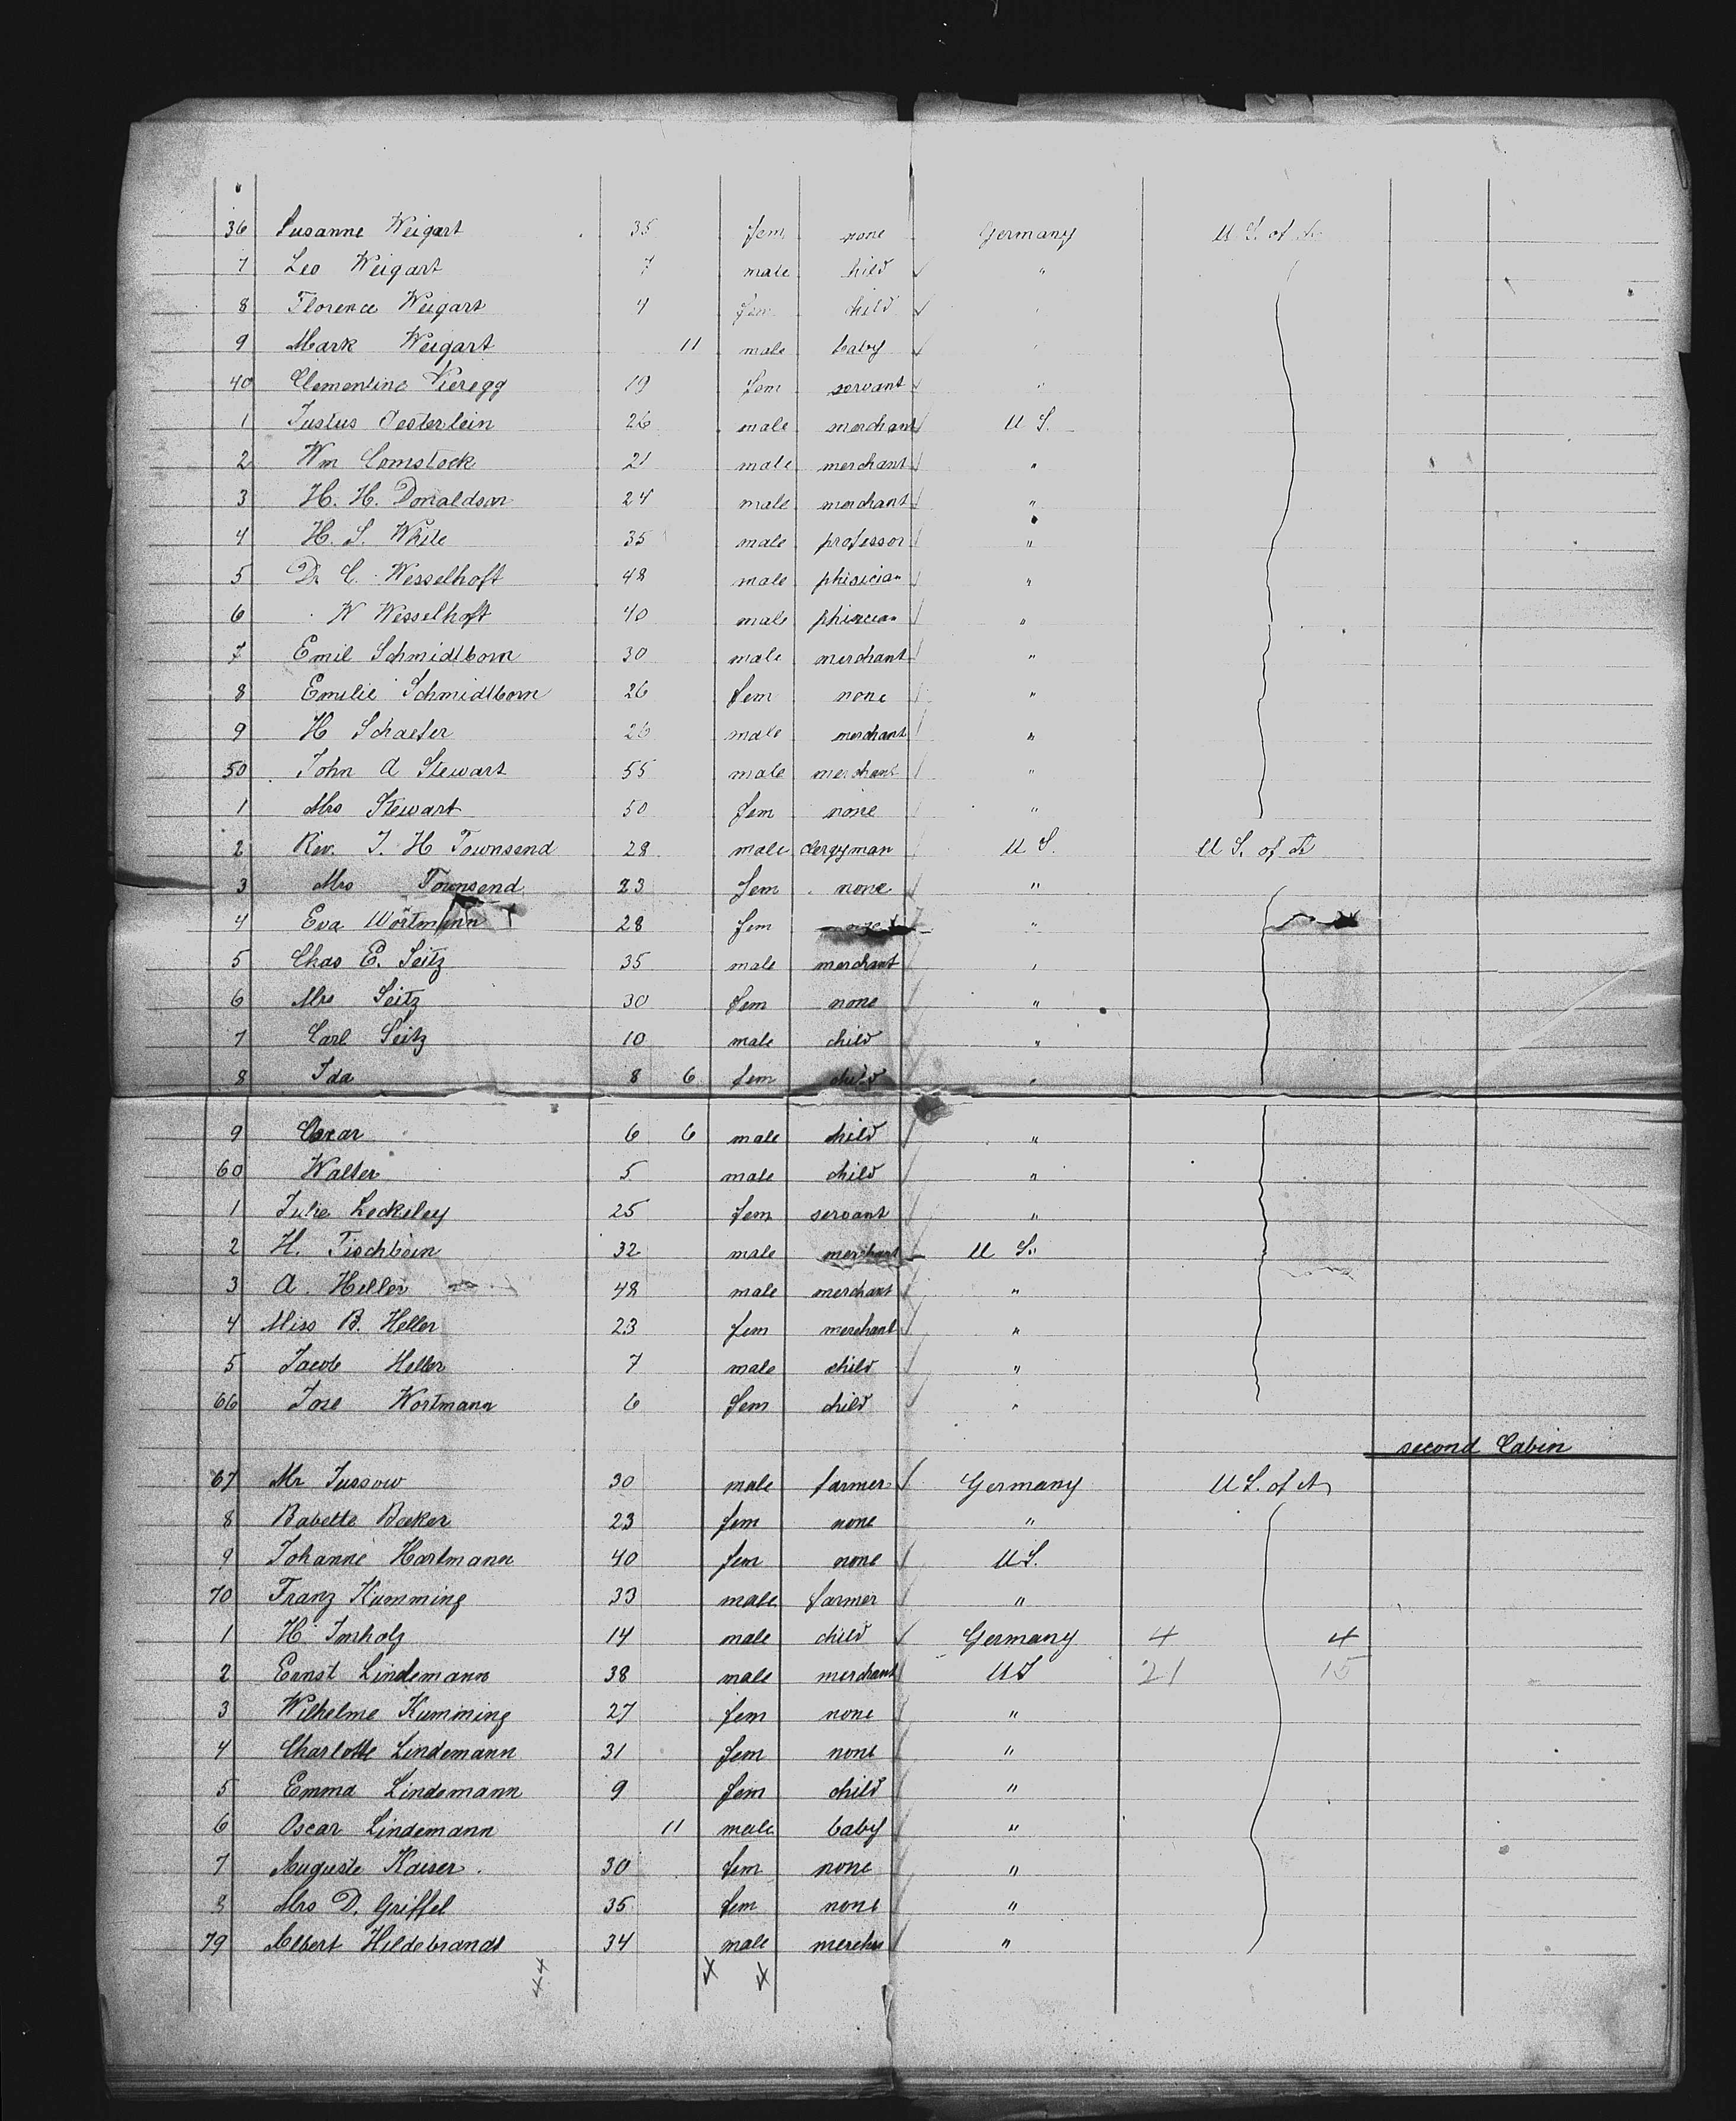 36 Susanne Weigart 35 fem none Germany U S. of A
7 Leo Weigart 7 male child "
8 Florence Weigart 4 fem child "
9 Mark Weigart 11 male baby "
40 Clementine Vieregg 19 fem servant "
1 Justus Oesterlein 26 male merchant U S.
2 Wm Comstock 21 male merchant "
3 H. H. Donaldson 24 male merchant "
4 H. S. White 35 male professor "
5 Dr C. Wesselhoft 48 male phisician "
6 W Wesselhoft 40 male phisician "
7 Emil Schmidtborn 30 male merchant "
8 Emilie Schmidtborn 26 fem none "
9 H Schaefer 26 male merchant "
50 John A Stewart 55 male merchant "
1 Mrs Stewart 50 fem none "
2 Rev. J. H Townsend 28 male clergyman U S. U S. of A
3 Mrs Townsend 23 fem none "
4 Eva Wortmann 28 fem none "
5 Chas E. Seitz 35 male merchant "
6 Mrs Seitz 30 fem none "
7 Carl Seitz 10 male child "
8 Ida 8 6 fem child "
9 Oscar 6 6 male child "
60 Walter 5 male child "
1 Julie Leckeley 25 fem servant "
2 H. Tischbein 32 male merchant U S. "
3 A. Heller 48 male merchant "
4 Miss B. Heller 23 fem merchant "
5 Jacob Heller 7 male child "
66 Jose Wortmann 6 fem child "
second Cabin
67 Mr Jussow 30 male farmer Germany U S. of A
8 Babette Boeker 23 fem none "
9 Johanne Hartmann 40 fem none U S.
70 Franz Kumming 33 male farmer "
1 H. Imholz 14 male child Germany 4 4
2 Ernst Lindemann 38 male merchant U S 21 15
3 Wilhelme Kumming 27 fem none "
4 Charlotte Lindemann 31 fem none "
5 Emma Lindemann 9 fem child "
6 Oscar Lindemann 11 male baby "
7 Auguste Kaiser. 30 fem none "
8 Mrs D. Griffel 35 fem none "
79 Albert Hildebrandt 34 male merchn "
44